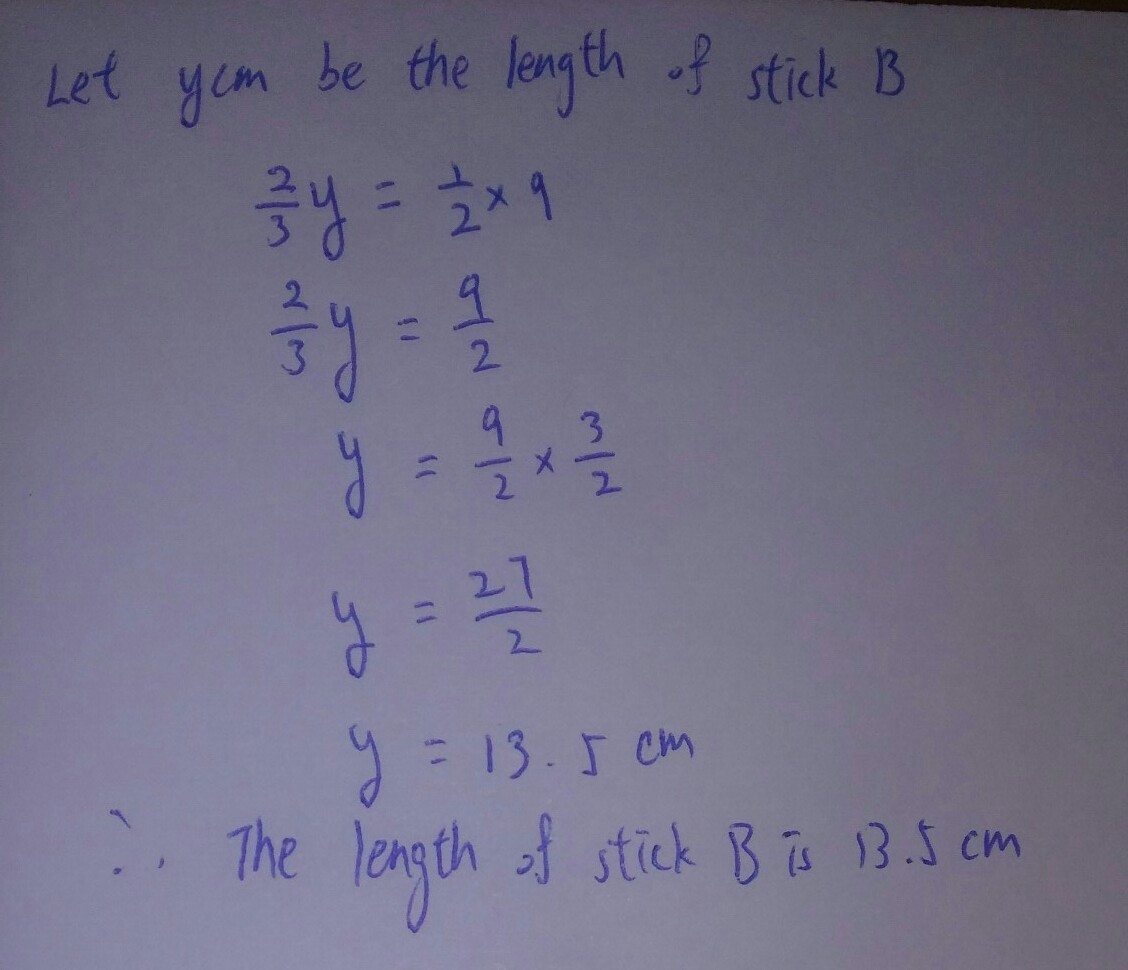 Let ycm be the length of stick B
2/3 y = 1/2 × 9
2/3 y = 9/2
y = 9/2 × 3/2
y = 27/2
y = 13.5 cm
∴ The length of stick B is 13.5 cm